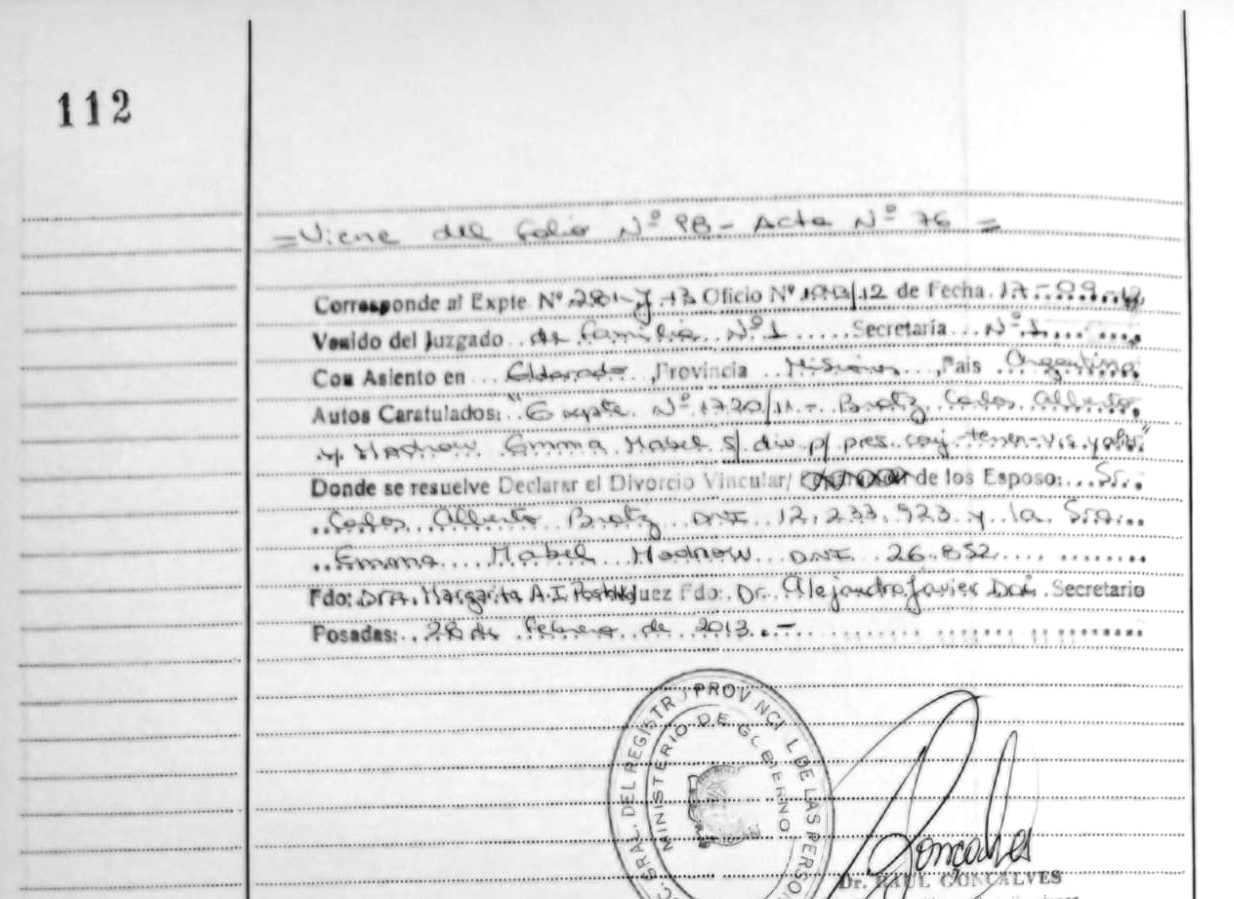 112
=Viene del folio Nº 98 - Acta Nº 76 =
Corresponde al Expte Nº 281-y-13 Oficio Nº /12 de Fecha 17-09-12
Venido del Juzgado de familia Nº 1 Secretaría Nº 1
Con Asiento en Eldorado, Provincia Misiones, País Argentina,
Autos Caratulados: "Expte. Nº 1720/11.- Bratz Carlos Alberto,
y Madnow Emma Mabel s/ div p/ pres. coj-tenen-vis. y alim."
Donde se resuelve Declarar el Divorcio Vincular/ de los Esposo: Sr.
Carlos Alberto Bratz DNI 12.233.923 y la Sra.
Emma Mabel Madnow DNI 26.852
Fdo: Dra. Margarita A.I Juez Fdo: Dr. Alejandro Javier Secretario
Posadas: 28 de febrero de 2013.-
GRAL. DEL REGISTRO PROVINCIAL DE LAS PERSON
MINISTERIO DE GOBIERNO
Goncalves
Dr. RAUL GONCALVES